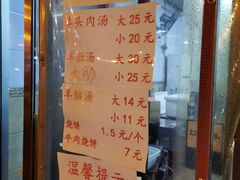 羊头肉汤 大25元
小20元
羊肚汤 大30元
小25元
羊脑汤 大14元
小11元
烧饼 1.5元/个
牛肉烧饼 7元
温馨提